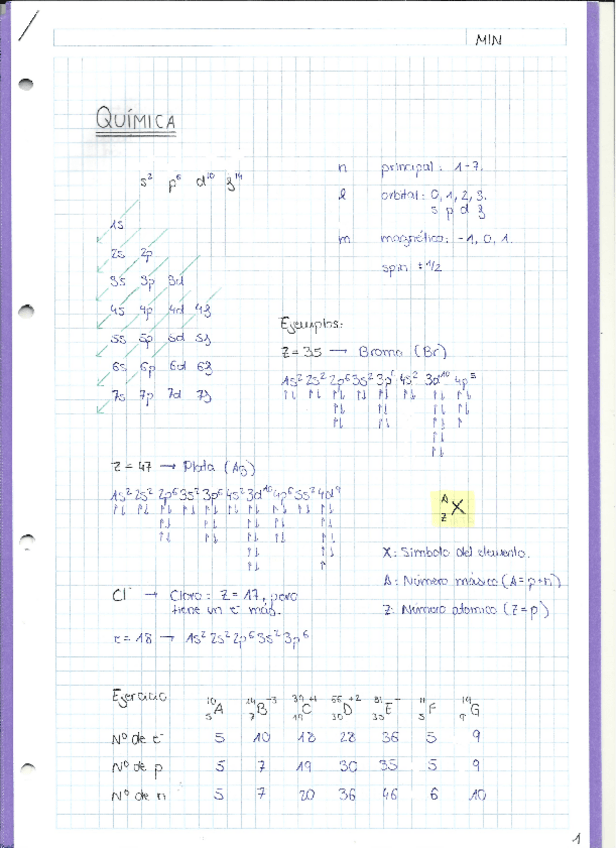 MIN
QUÍMICA
s² p⁶ d¹⁰ f¹⁴
1s
2s 2p
3s 3p 3d
4s 4p 4d 4f
5s 5p 5d 5f
6s 6p 6d 6f
7s 7p 7d 7f
n principal: 1-7.
l orbital: 0, 1, 2, 3.
s p d f
m magnético: -1, 0, 1.
spin ±1/2
Ejemplos:
Z = 35 → Bromo (Br)
1s² 2s² 2p⁶ 3s² 3p⁶ 4s² 3d¹⁰ 4p⁵
Z = 47 → Plata (Ag)
1s² 2s² 2p⁶ 3s² 3p⁶ 4s² 3d¹⁰ 4p⁶ 5s² 4d⁹
A
Z X
X: Símbolo del elemento.
A: Número másico (A=p+n)
Z: Número atómico (Z=p)
Cl⁻ → Cloro: Z = 17, pero
tiene un e⁻ más.
e = 18 → 1s² 2s² 2p⁶ 3s² 3p⁶
Ejercicio ¹⁰₅A ¹⁴₇B⁻³ ³⁹₁₉C⁺¹ ⁶⁶₃₀D⁺² ⁸¹₃₅E⁻ ¹¹₅F ¹⁹₉G
Nº de e⁻ 5 10 18 28 36 5 9
Nº de p 5 7 19 30 35 5 9
Nº de n 5 7 20 36 46 6 10
1